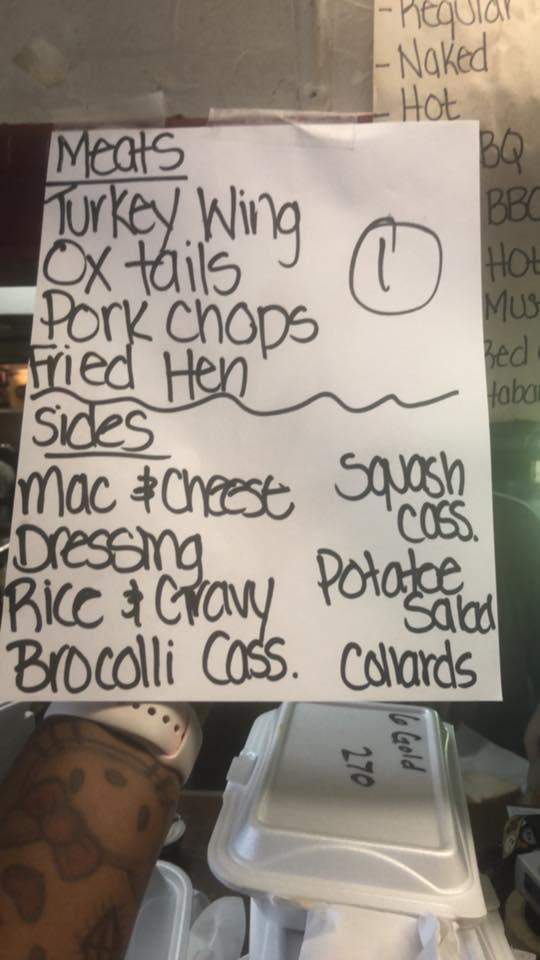 - Regular
- Naked
- Hot
BQ
Meats
Turkey Wing
Ox tails
Pork Chops
Fried Hen
1
Sides
Mac & Cheese
Dressing
Rice & Gravy
Brocolli Cass.
Squash
Cass.
Potatoe
Salad
Collards
6 Gold
270